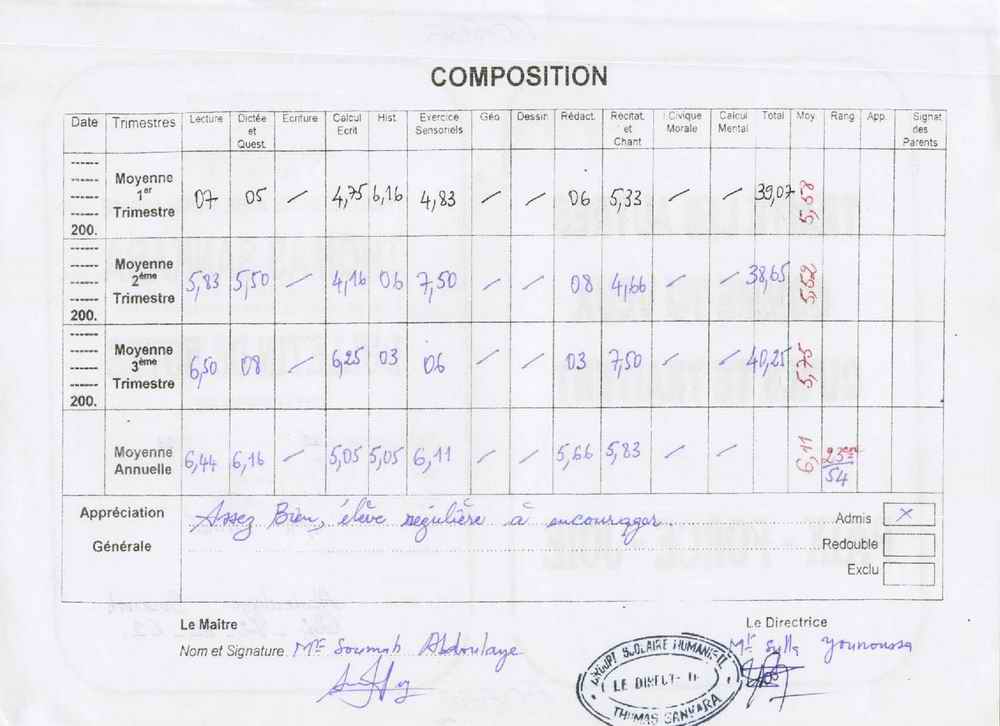 COMPOSITION
Date Trimestres Lecture Dictée et Quest. Ecriture Calcul Ecrit Hist. Exercice Sensoriels Géo Dessin Rédact. Récitat. et Chant I Civique Morale Calcul Mental Total Moy. Rang App. Signat des Parents
200. Moyenne 1er Trimestre 07 05 / 4,75 6,16 4,83 / / 06 5,33 / / 39,07 5,58
200. Moyenne 2ème Trimestre 5,83 5,50 / 4,16 06 7,50 / / 08 4,66 / / 38,65 5,52
200. Moyenne 3ème Trimestre 6,50 08 / 6,25 03 06 / / 03 7,50 / / 40,25 5,75
Moyenne Annuelle 6,44 6,16 / 5,05 5,05 6,11 / / 5,66 5,83 / / 6,11 23em/54
Appréciation Générale
Assez Bien, élève régulière à encourager.
Admis X
Redouble
Exclu
Le Maître
Nom et Signature. Mr Soumah Abdoulaye
Le Directrice
Mr Sylla Younoussa
GROUPE SCOLAIRE
THOMAS SANKARA